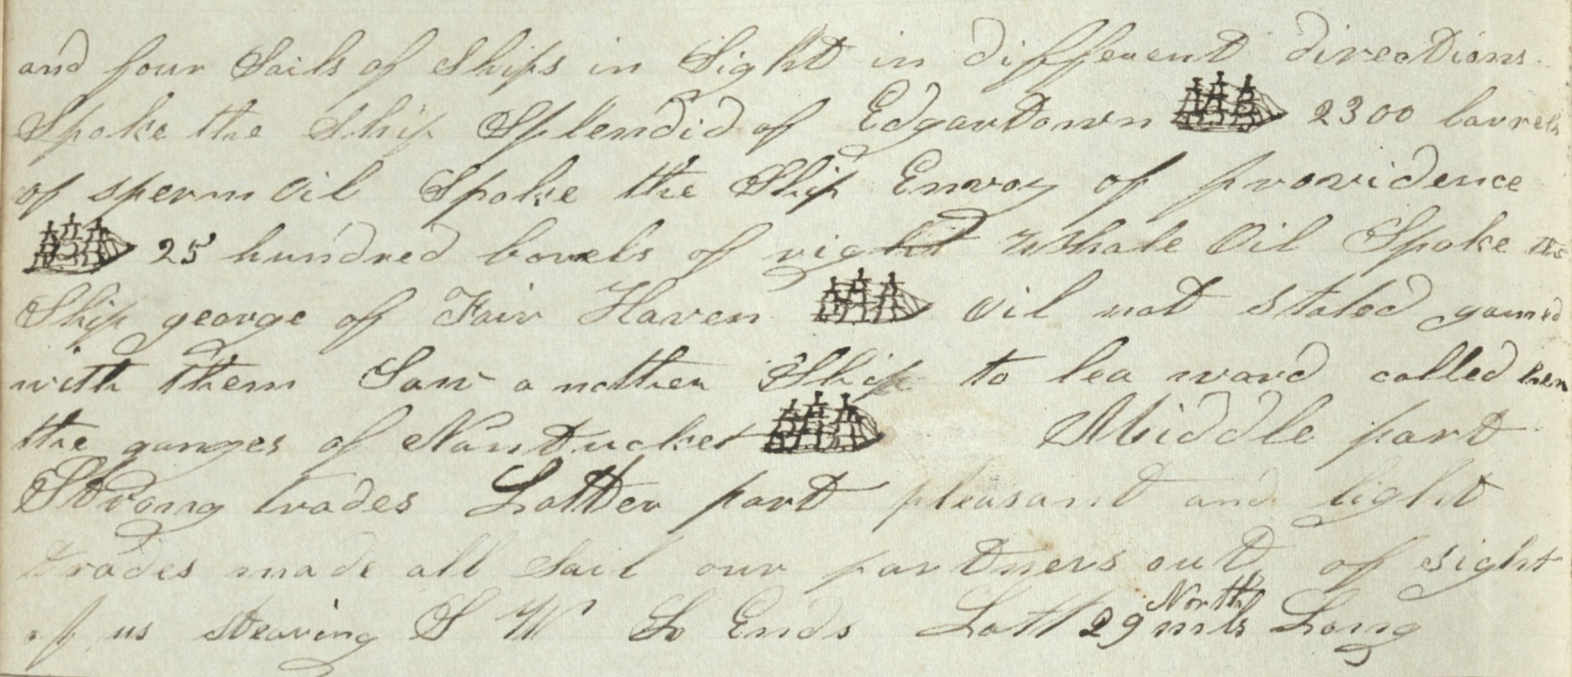 and four Sails of Ships in Sight in different directions
Spoke the Ship Splendid of Edgartown 2300 barrels
of sperm Oil Spoke the Ship Envoy of providence
25 hundred barels of right Whale Oil Spoke the
Ship george of Fair Haven Oil not stated gamed
with them Saw a nother Ship to lea ward called her
the ganges of Nantucket Middle part
Strong trades Latter part pleasant and light
trades made all sail our partners out of sight
of us stearing S W So Ends Latt 29 North mls Long